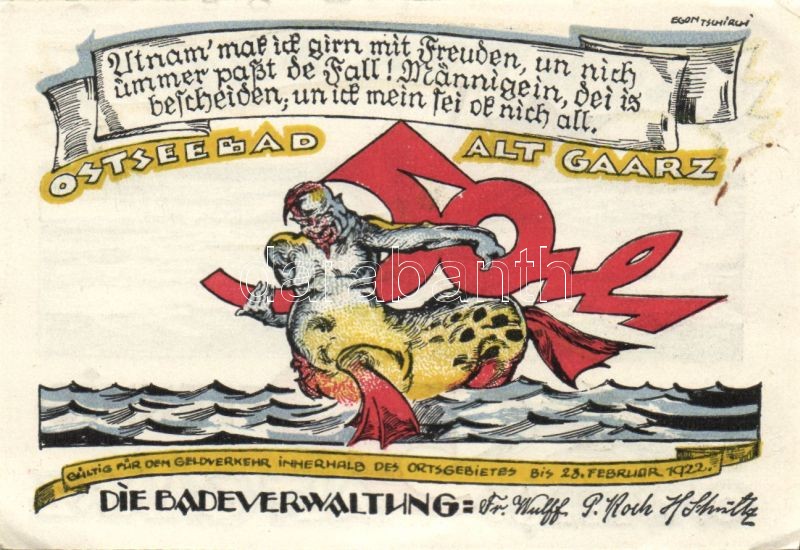 EGON TSCHIRCH
Utnam' mak ick girn mit Freuden, un nich
ümmer paßt de Fall! Männigein, dei is
bescheiden, un ick mein sei ok nich all.
OSTSEEBAD ALT GAARZ
darabanth
GÜLTIG FÜR DEN GELDVERKEHR INNERHALB DES ORTSGEBIETES BIS 28. FEBRUAR 1922.
DIE BADEVERWALTUNG: Fr. Wulff P. Koch H Schultz